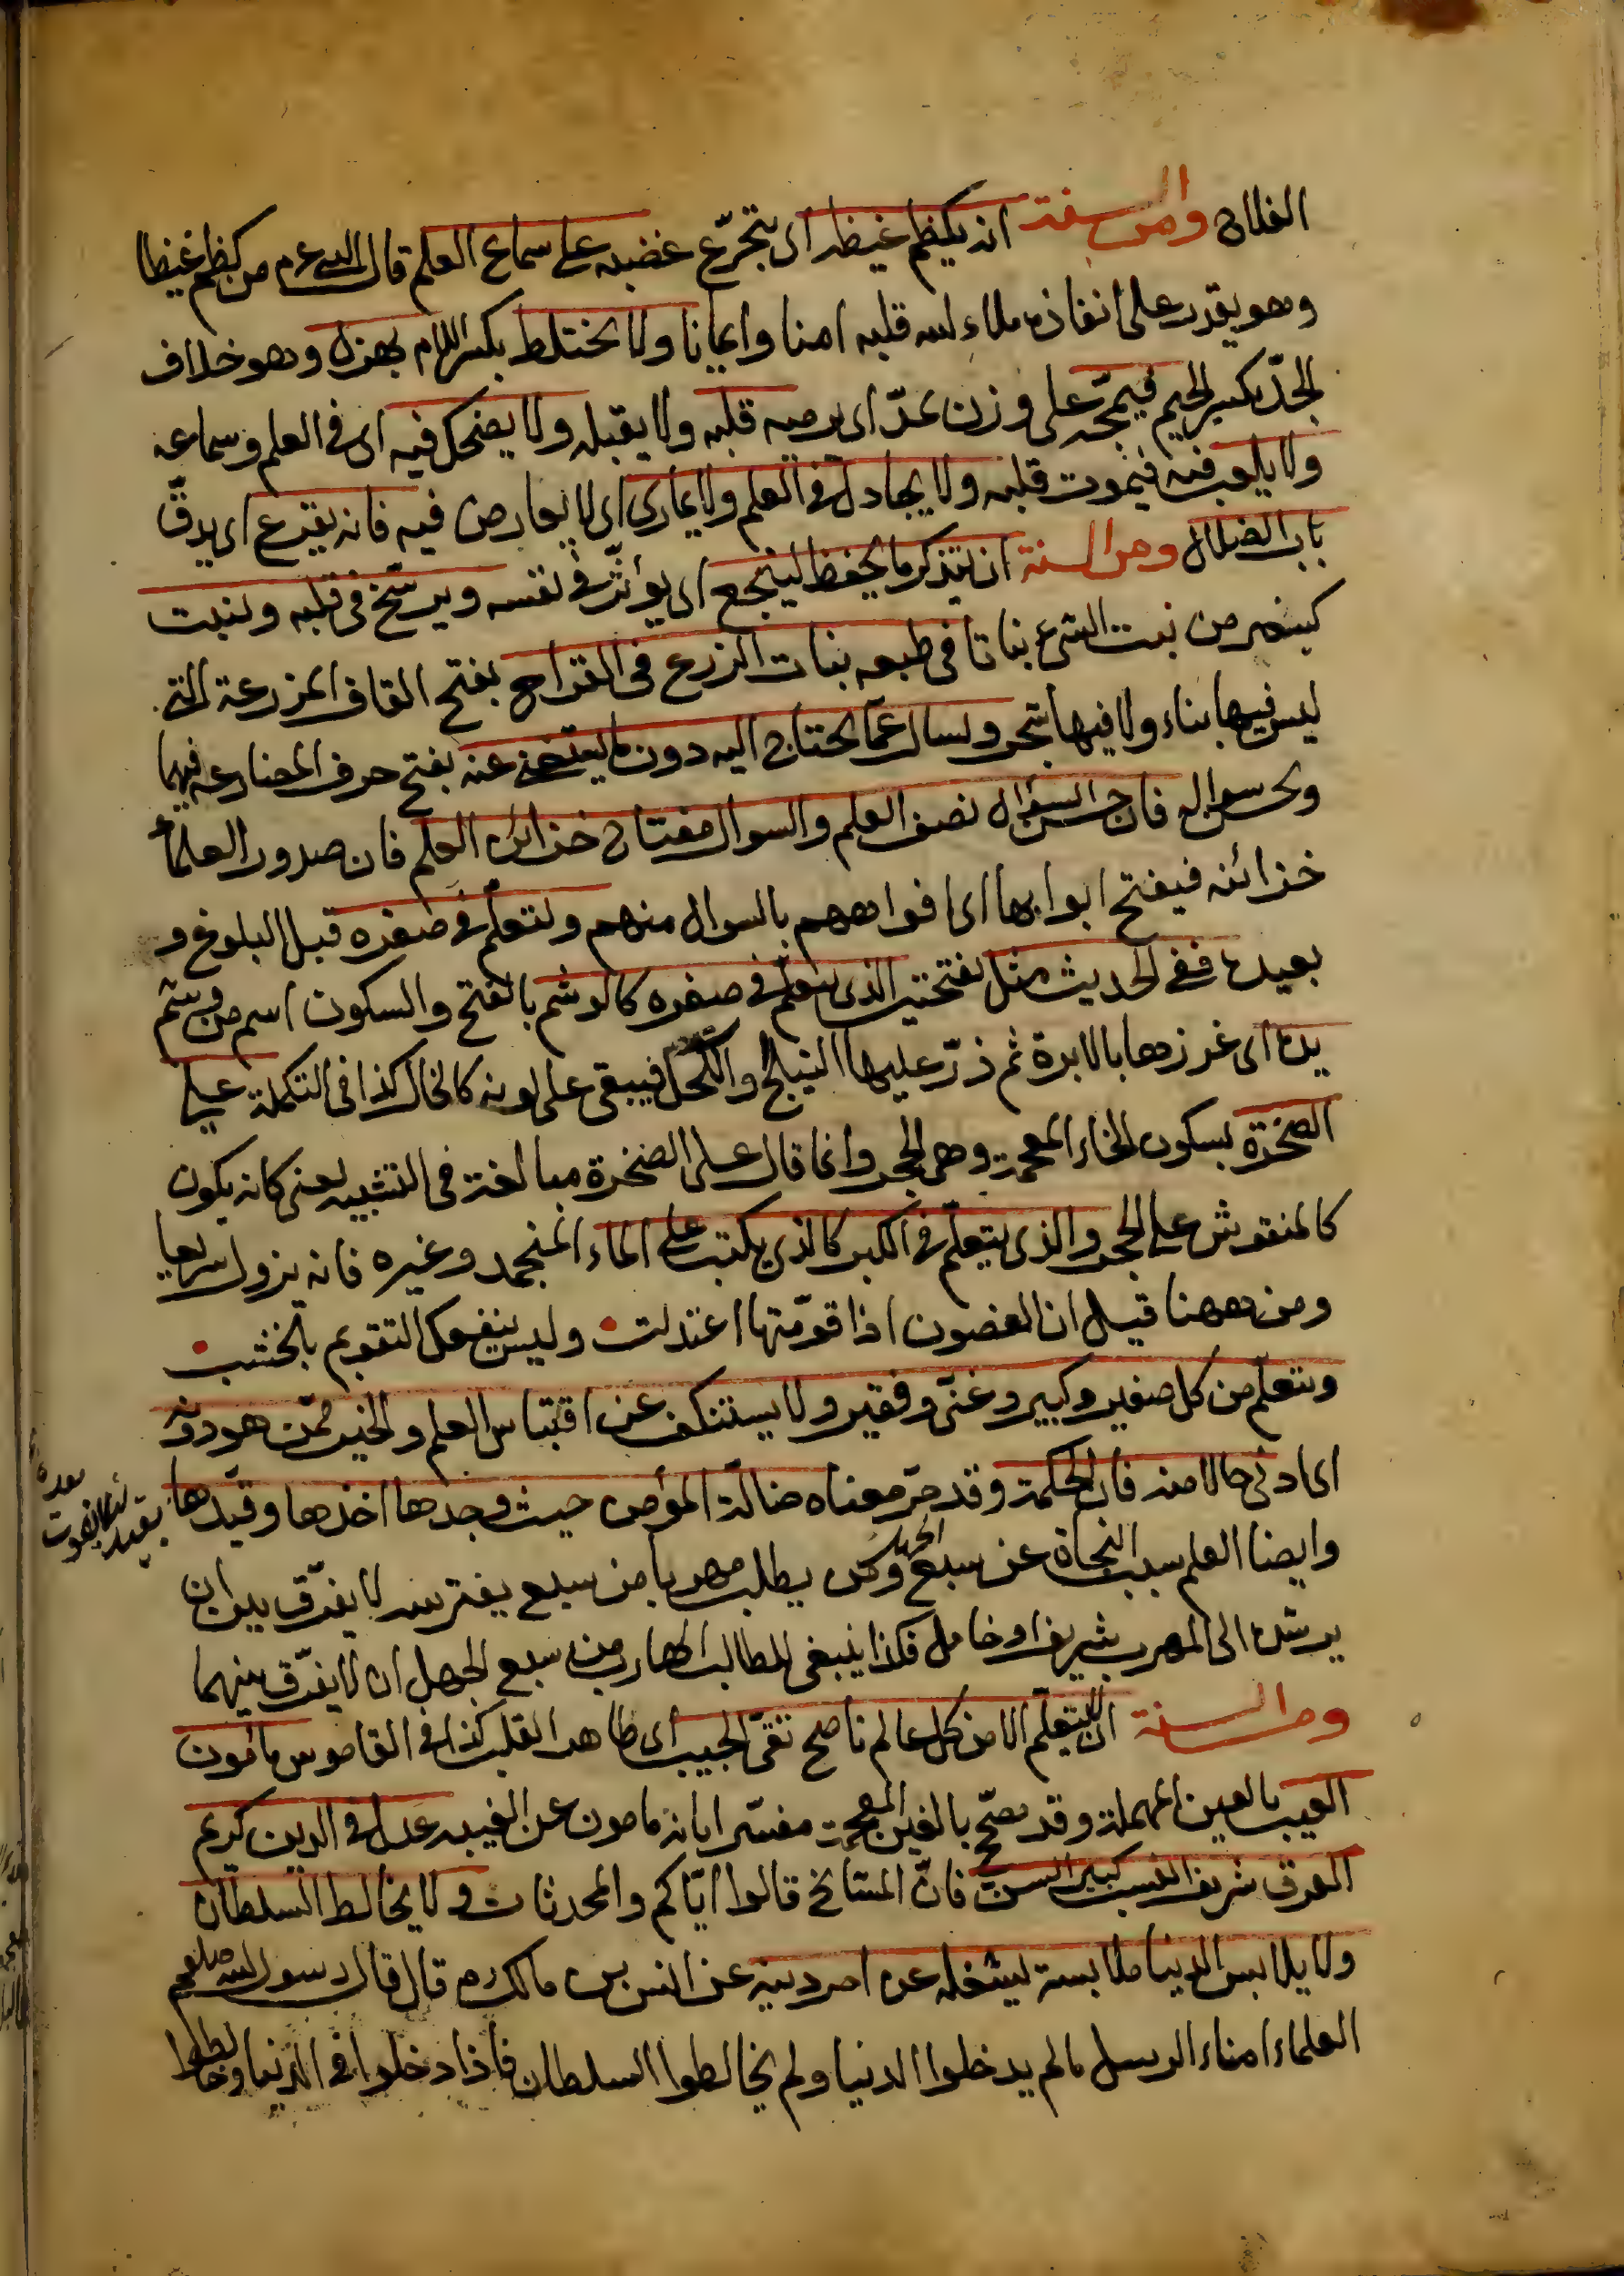 الفلان ومن السنة ان يكظم غيظه اى يتجرّع غضبه على سماع العلم قال النبى عم من كظم غيظا
وهو يقدر على انفاذه ملاء لله قلبه امنا وايمانا ولا يختلط بكسر اللام بهزل وهو خلاف
الجدّ بكسر الجيم فيمجّه على وزن عدّ اى يرميه قلبه ولا يقبله ولا يضحك فيه اى فى العلم وسماعه
ولا يلعب فيه فيموت قلبه ولا يجادل فى العلم ولا يمارى اى لا يعارض فيه فانه يقرع اى يدقّ
باب الضلال ومن السنة ان يتذكر ما يحفظ لينجع اى يؤثّر فى نفسه ويرسّخ فى قلبه وينبت
كينصر من نبت الشئ نباتا فى طبعه نبات الزرع فى القراح بفتح القاف المزرعة التى
ليس فيها بناء ولا فيها شجر ويسال عمّا يحتاج اليه دون ما يستغنى عنه بفتح حرف المضارعة فيهما
ويحسن سواله فان حسن السؤال نصف العلم والسوال مفتاح خزائن العلم فان صدور العلماء
خزائنه فيفتح ابوابها اى افواههم بالسوال منهم ويتعلّم فى صغره قبل البلوغ و
بعيده ففى الحديث مثل بفتحتين الذى يتعلّم فى صغره كالوشم بالفتح والسكون اسم من وشم
يده اى غرزها بالابرة ثم ذرّ عليها النيلج والكحل فيبقى على لونه كالخال كذا فى التكملة على
الصخرة بسكون الخاء المعجمة وهى الحجر وانما قال على الصخرة مبالغة فى التشبيه يعنى كانه يكون
كالمنقوش على الحجر والذى يتعلّم فى الكبر كالذى يكتب على الماء المنجمد وغيره فانه يزول سريعا
ومن ههنا قيل ان الغصون اذا قوّمتها اعتدلت وليس ينفعك التقويم بالخشب
ويتعلّم من كل صغير وكبير وغنىّ وفقير ولا يستنكف عن اقتباس العلم والخير ممّن هو دونه
اى ادنى حالا منه فان الحكمة وقد مرّ معناه ضالّة المؤمن حيث وجدها اخذها وقيّدها
وايضا العلم سبب النجاة عن سبع الجهل ومن يطلب مهربا من سبع يفترسه لا يفرّق بين ان
يرشده الى المهرب شريف او خامل فكذا ينبغى للطالب الهارب من سبع الجهل ان لا يفرّق بينهما
ومن السنة ان لا يتعلّم الا من كل عالم ناصح نقىّ الجيب اى طاهر القلب كذا فى القاموس مأمون
العيب بالعين المهملة وقد صحّح بالغين المعجمة مفسّرا بانه مامون عن الغيبه عدل فى الدين كريم
العرق شريف النسب كبير السن فانّ المشايخ قالوا ايّاكم والمحدثات ولا يخالط السلطان
ولا يلابس الدنيا ملابسة يشغله عن امر دينه عن انس بن مالك رم قال قال رسول الله صلعم
العلماء امناء الرسل مالم يدخلوا الدنيا ولم يخالطوا السلطان فاذا دخلوا فى الدنيا وخالطوا